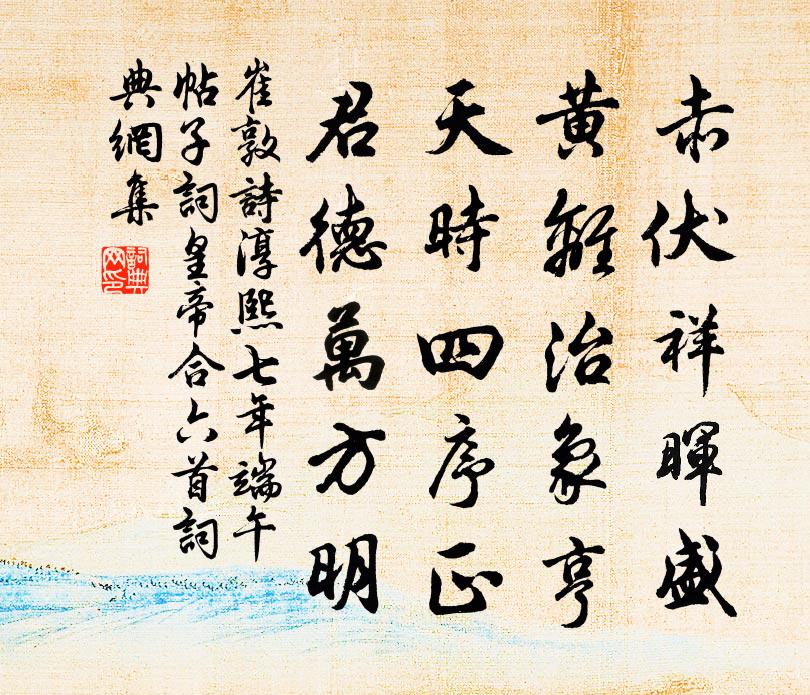 赤伏祥暉盛
黃離治象亨
天時四序正
君德萬方明
崔敦詩淳熙七年端午
帖子詞皇帝合六首詞
典網集
詞典網印